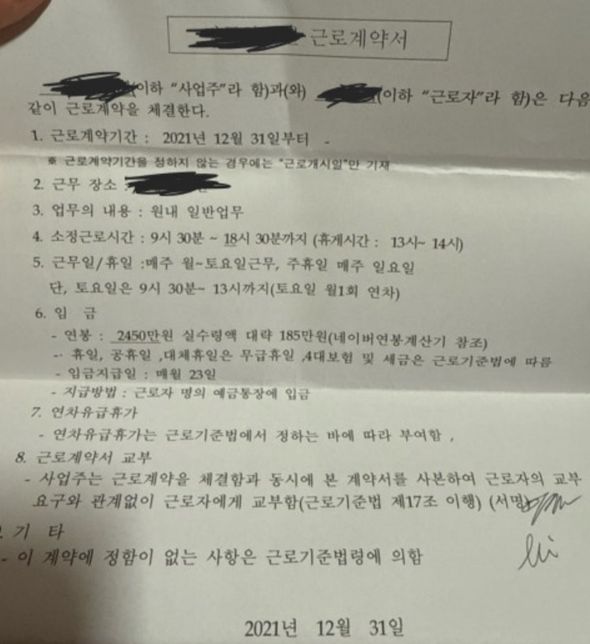 근로계약서
(이하 "사업주"라 함)과(와) (이하 "근로자"라 함)은 다음
같이 근로계약을 체결한다.
1. 근로계약기간 : 2021년 12월 31일부터 -
※ 근로계약기간을 정하지 않는 경우에는 "근로개시일"만 기재
2. 근무 장소 :
3. 업무의 내용 : 원내 일반업무
4. 소정근로시간 : 9시 30분 ~ 18시 30분까지 (휴게시간 : 13시~ 14시)
5. 근무일/휴일 :매주 월~토요일근무, 주휴일 매주 일요일
단, 토요일은 9시 30분~ 13시까지(토요일 월1회 연차)
6. 임 금
- 연봉 : 2450만원 실수령액 대략 185만원(네이버연봉계산기 참조)
- 휴일, 공휴일 ,대체휴일은 무급휴일 ,4대보험 및 세금은 근로기준법에 따름
- 임금지급일 : 매월 23일
- 지급방법 : 근로자 명의 예금통장에 입금
7. 연차유급휴가
- 연차유급휴가는 근로기준법에서 정하는 바에 따라 부여함 ,
8. 근로계약서 교부
- 사업주는 근로계약을 체결함과 동시에 본 계약서를 사본하여 근로자의 교부
요구와 관계없이 근로자에게 교부함(근로기준법 제17조 이행) (서명)
. 기 타
- 이 계약에 정함이 없는 사항은 근로기준법령에 의함
2021년 12월 31일